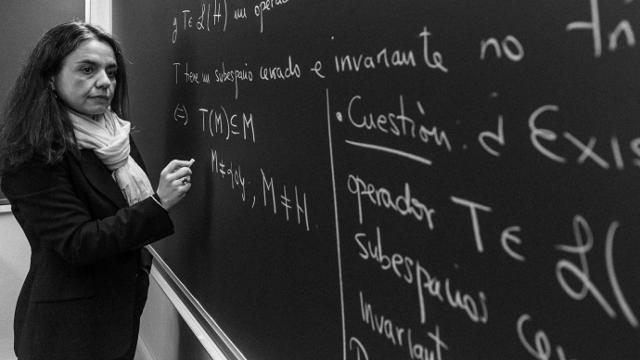 y T∈ ℒ(H) un opera
T tiene un subespacio cerrado e invariante no
⇔ T(M)⊆M
M≠{0}; M≠H
• Cuestión: ¿Exis
operador T∈ ℒ(
subespacios
invariant